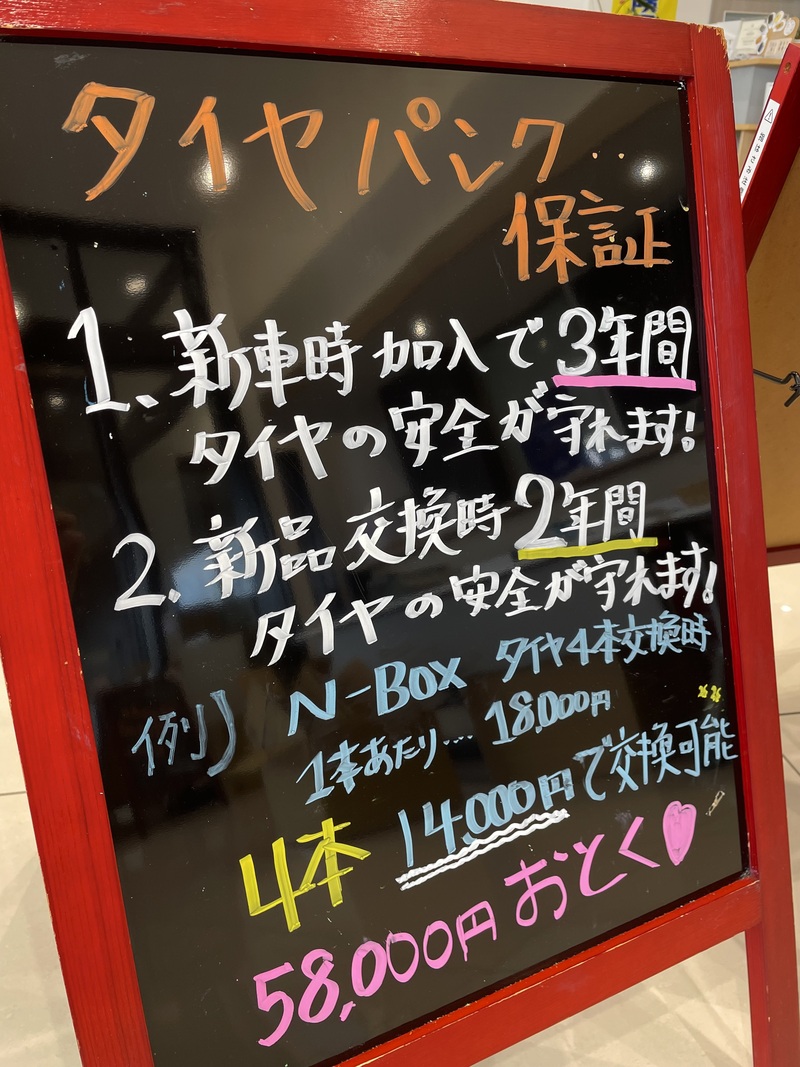 タイヤパンク‥
保証
1、新車時加入で3年間
タイヤの安全が守れます!
2.新品交換時2年間
タイヤの安全が守れます!
例) N-Box タイヤ4本交換時
1本あたり… 18,000円
4本 14,000円で交換可能
58,000円おとく